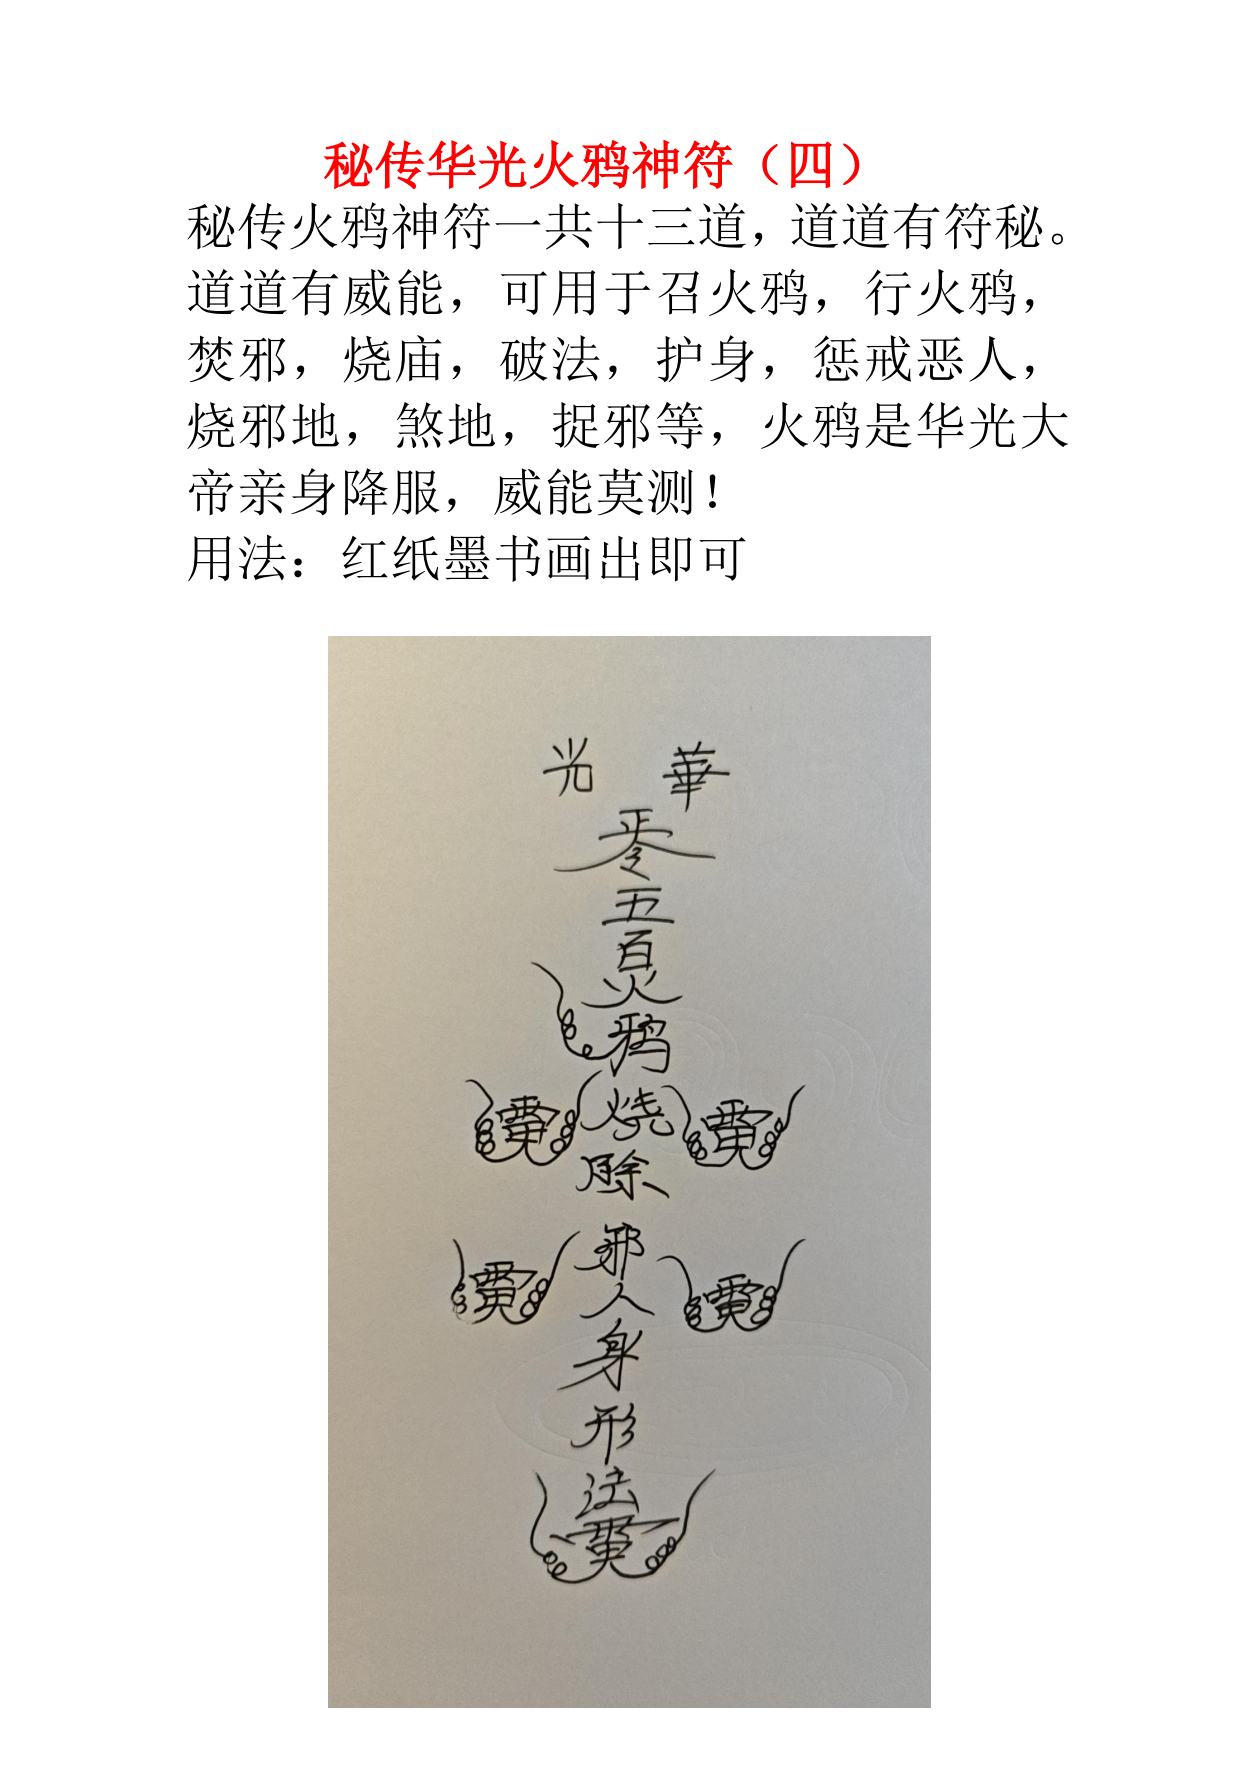 秘传华光火鸦神符（四）
秘传火鸦神符一共十三道，道道有符秘。
道道有威能，可用于召火鸦，行火鸦，
焚邪，烧庙，破法，护身，惩戒恶人，
烧邪地，煞地，捉邪等，火鸦是华光大
帝亲身降服，威能莫测！
用法：红纸墨书画出即可
華 光
五
百
火
鸦
烧
除
邪
人
身
形
法